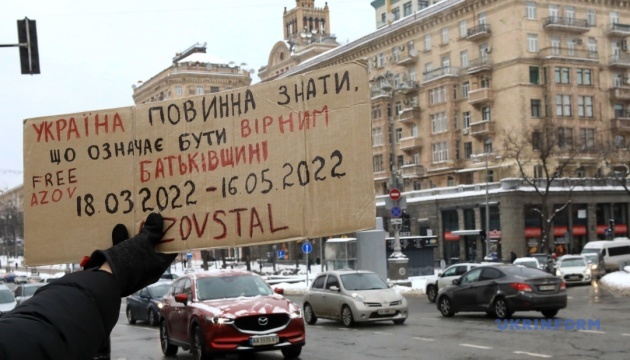 УКРАЇНА ПОВИННА ЗНАТИ,
ЩО ОЗНАЧАЄ БУТИ ВІРНИМ
БАТЬКІВЩИНІ
FREE
AZOV
18.03.2022 – 16.05.2022
ZOVSTAL
UKRINFORM